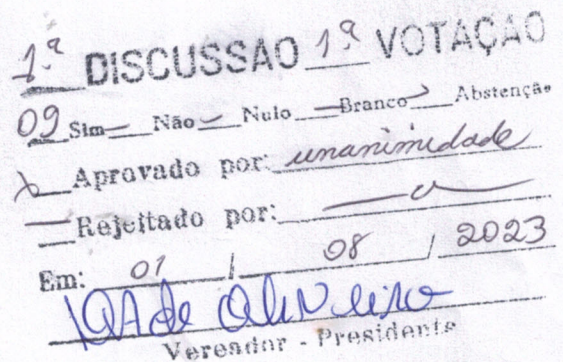 1ª DISCUSSAO 1ª VOTAÇAO
09 Sim — Não — Nulo — Branco — Abstenção
X Aprovado por: unanimidade
— Rejeitado por: —
Em: 01 / 08 / 2023
de Oliveira
Vereador - Presidente